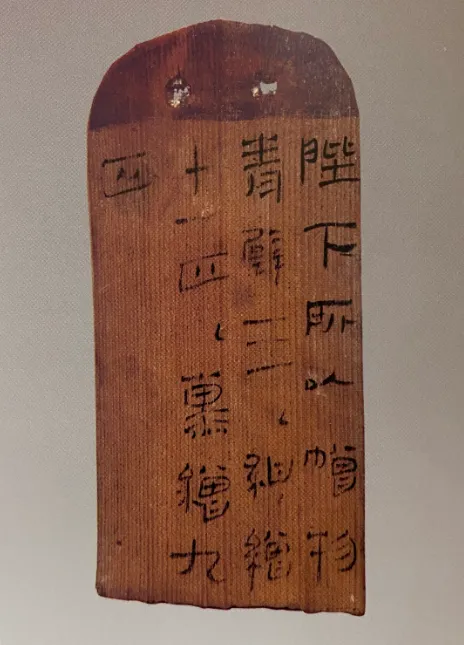 陛下所以贈物
青璧三、紺繒
十一匹、熏繒九
匹